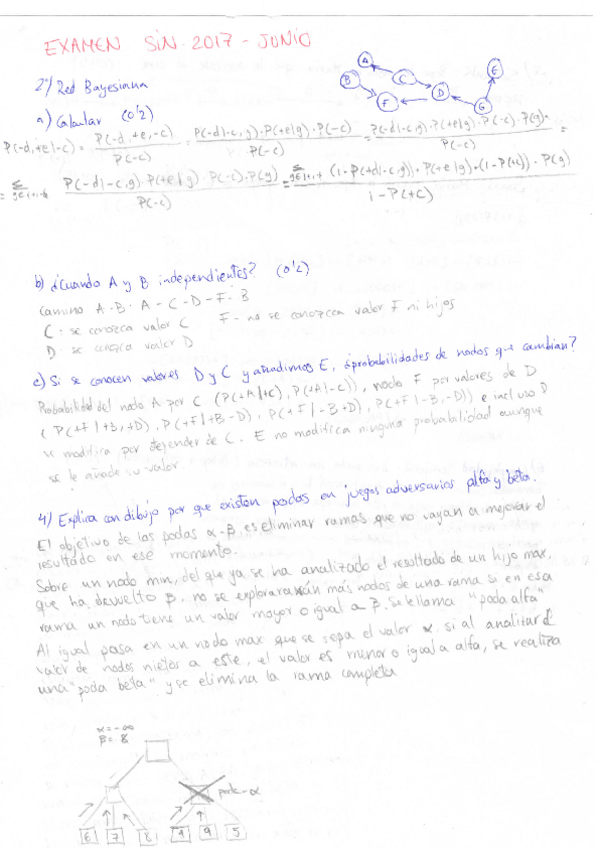 EXAMEN SIN 2017 - JUNIO
2º/ Red Bayesiana
A
B
C
D
E
F
G
a) Calcular (0'2)
P(-d,+e|-c) = P(-d,+e,-c) / P(-c) = P(-d|-c,g)·P(+e|g)·P(-c) / P(-c) = P(-d|-c,g)·P(+e|g)·P(-c)·P(g) / P(-c) =
= Σ P(-d|-c,g)·P(+e|g)·P(-c)·P(g) / P(-c) = Σ (1-P(+d|-c,g))·P(+e|g)·(1-P(+c))·P(g) / 1-P(+c)
b) ¿Cuando A y B independientes? (0'2)
Camino A-B: A-C-D-F-B
C: se conozca valor C F- no se conozca valor F ni hijos
D: se conozca valor D
c) Si se conocen valores D y C y añadimos E, ¿probabilidades de nodos que cambian?
Probabilidad del nodo A por C (P(+A|+C), P(+A|-C)), nodo F por valores de D
(P(+F|+B,+D), P(+F|+B-D), P(+F|-B+D), P(+F|-B,-D)) e incluso D
se modifica por depender de C. E no modifica ninguna probabilidad aunque
se le añade su valor.
4/ Explica con dibujo por que existen podas en juegos adversarios alfa y beta.
El objetivo de las podas α-β es eliminar ramas que no vayan a mejorar el
resultado en ese momento.
Sobre un nodo min, del que ya se ha analizado el resultado de un hijo max,
que ha devuelto β, no se explorarán más nodos de una rama si en esa
rama un nodo tiene un valor mayor o igual a β. Se le llama "poda alfa"
Al igual pasa en un nodo max que se sepa el valor α, si al analizar el
valor de nodos nietos a este, el valor es menor o igual a alfa, se realiza
una "poda beta" y se elimina la rama completa
α=-∞
β=8
poda-α
6 7 8 9 5